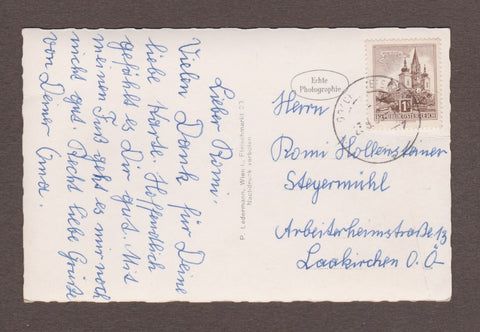 Lieber Romi.
Vielen Dank für Deine
liebe Karte. Hoffentlich
gefählt es Dir gut. Mit
meinen Fuß geht es mir noch
nicht gut. Recht liebe Grüße
von Deiner Oma.
P. Ledermann, Wien I., Fleischmarkt 23
Nachdruck verboten
Echte
Photographie
REPUBLIK ÖSTERREICH
Herrn
Romi Hollensteiner
Steyermühl
Arbeiterheimstraße 13
Laakirchen O.Ö